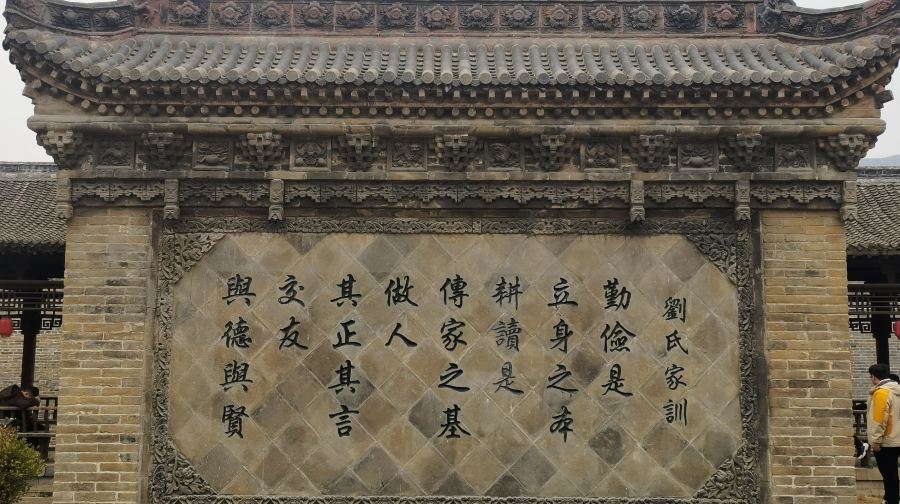 劉氏家訓
勤儉是
立身之本
耕讀是
傳家之基
做人
其正其言
交友
與德與賢